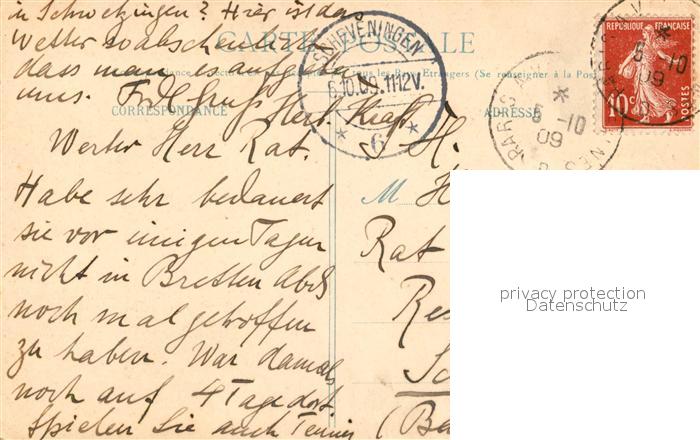 in Schwetzingen? Hier ist das
Wetter so abscheulich
dass man es aufgeben
muss. Frdl Gruss Herb. Kraft
CARTE POSTALE
tous les Pays Etrangers (Se renseigner à la Poste
CORRESPONDANCE
ADRESSE
SCHEVENINGEN
6.10.09.11-12V.
* 6 *
PARIS
6 -10
09
REPUBLIQUE FRANÇAISE
10c
POSTES
Werter Herr Rat.
Habe sehr bedauert
sie vor einigen Tagen
nicht in Bretten Abds
noch mal getroffen
zu haben. War damals
noch auf 4 Tage dort.
Spielen Sie auch Tennis
S. H.
M H
Rat
Re
Sc
(Ba
privacy protection
Datenschutz